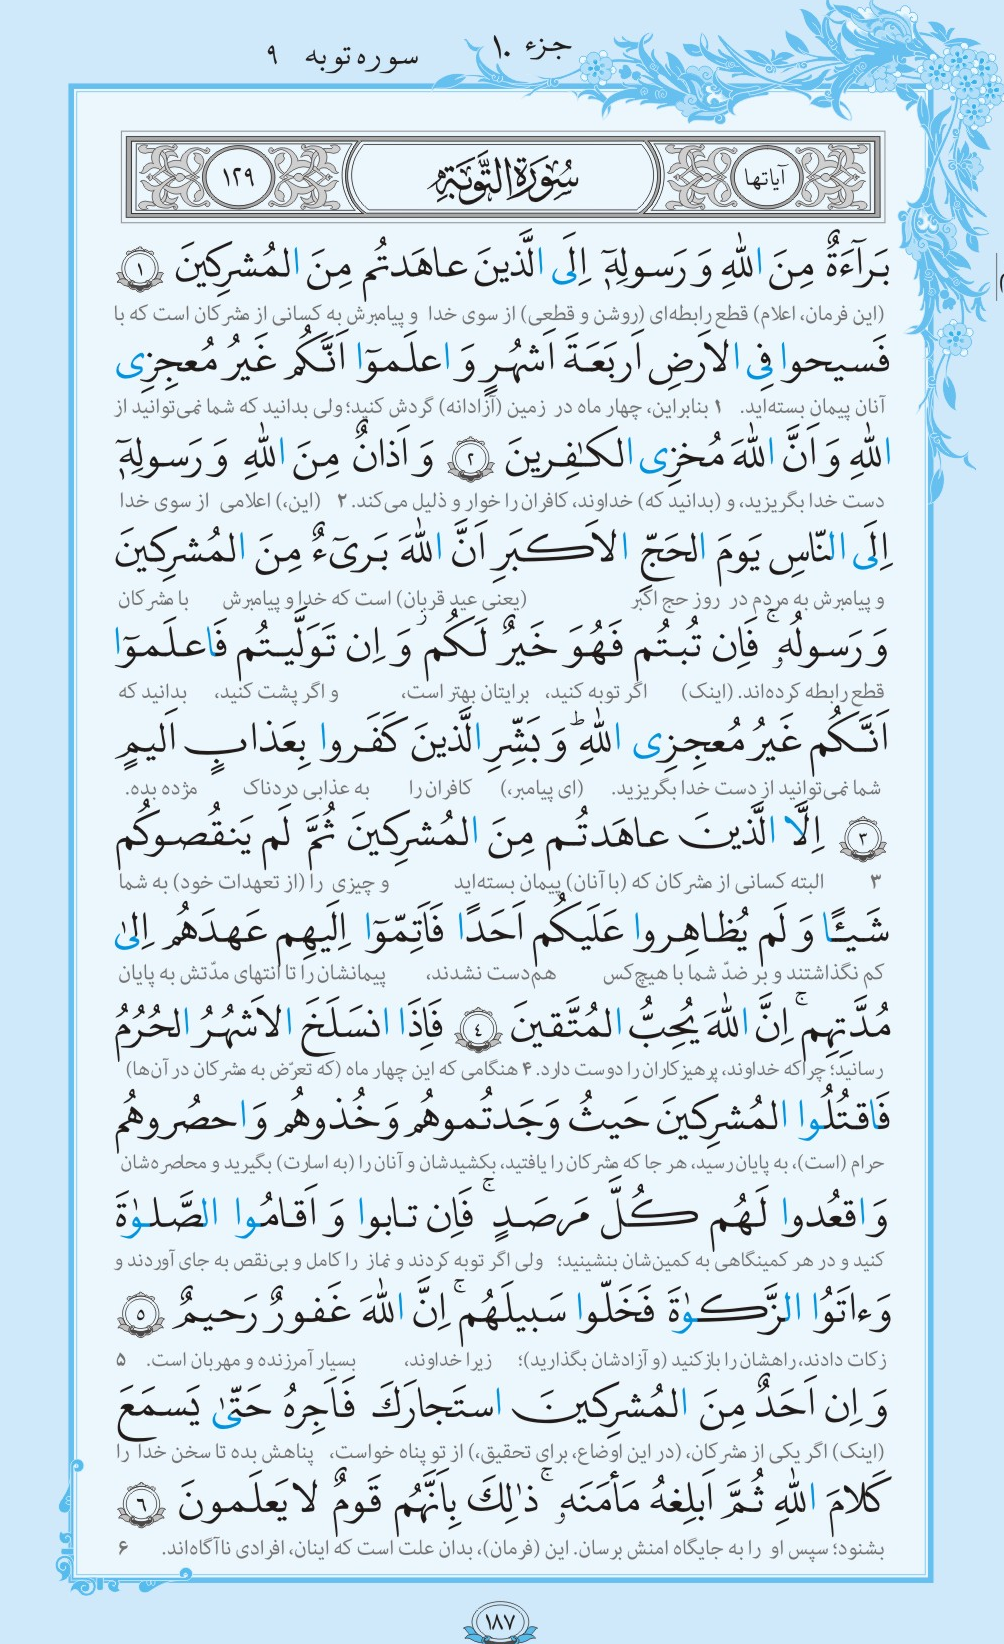 جزء ۱۰
سوره توبه ۹
آیاتها
سُورَةُ التَّوبَةِ
۱۲۹
بَرَآءَةٌ مِنَ اللهِ وَ رَسولِهٖٓ اِلَى الَّذينَ عاهَدتُم مِنَ المُشرِكينَ ﴿١﴾
(این فرمان، اعلام) قطع رابطه‌ای (روشن و قطعی) از سوی خدا و پیامبرش به کسانی از مشرکان است که با
فَسيحوا فِى الاَرضِ اَربَعَةَ اَشهُرٍ وَ اعلَموٓا اَنَّكُم غَيرُ مُعجِزِى
آنان پیمان بسته‌اید. ۱ بنابراین، چهار ماه در زمین (آزادانه) گردش کنید؛ ولی بدانید که شما نمی‌توانید از
اللهِ وَ اَنَّ اللهَ مُخزِى الكـٰفِرينَ ﴿٢﴾ وَ اَذانٌ مِنَ اللهِ وَ رَسولِهٖٓ
دست خدا بگریزید، و (بدانید که) خداوند، کافران را خوار و ذلیل می‌کند. ۲ (این،) اعلامی از سوی خدا
اِلَى النّاسِ يَومَ الحَجِّ الاَكبَرِ اَنَّ اللهَ بَرىٓءٌ مِنَ المُشرِكينَ
و پیامبرش به مردم در روز حج اکبر (یعنی عید قربان) است که خدا و پیامبرش با مشرکان
وَ رَسولُهٗ ۚ فَاِن تُبتُم فَهُوَ خَيرٌ لَكُم ۖ وَ اِن تَوَلَّيتُم فَاعلَموٓا
قطع رابطه کرده‌اند. (اینک) اگر توبه کنید، برایتان بهتر است، و اگر پشت کنید، بدانید که
اَنَّكُم غَيرُ مُعجِزِى اللهِ ؕ وَ بَشِّرِ الَّذينَ كَفَروا بِعَذابٍ اَليمٍ
شما نمی‌توانید از دست خدا بگریزید. (ای پیامبر،) کافران را به عذابی دردناک مژده بده.
﴿٣﴾ اِلَّا الَّذينَ عاهَدتُم مِنَ المُشرِكينَ ثُمَّ لَم يَنقُصوكُم
۳ البته کسانی از مشرکان که (با آنان) پیمان بسته‌اید و چیزی را (از تعهدات خود) به شما
شَيـًٔا وَ لَم يُظاهِروا عَلَيكُم اَحَدًا فَاَتِمّوٓا اِلَيهِم عَهدَهُم اِلىٰ
کم نگذاشتند و بر ضدّ شما با هیچ‌کس هم‌دست نشدند، پیمانشان را تا انتهای مدّتش به پایان
مُدَّتِهِم ۚ اِنَّ اللهَ يُحِبُّ المُتَّقينَ ﴿٤﴾ فَاِذَا انسَلَخَ الاَشهُرُ الحُرُمُ
رسانید؛ چراکه خداوند، پرهیزکاران را دوست دارد. ۴ هنگامی که این چهار ماه (که تعرّض به مشرکان در آن‌ها)
فَاقتُلُوا المُشرِكينَ حَيثُ وَجَدتُموهُم وَ خُذوهُم وَ احصُروهُم
حرام (است)، به پایان رسید، هر جا که مشرکان را یافتید، بکشیدشان و آنان را (به اسارت) بگیرید و محاصره‌شان
وَ اقعُدوا لَهُم كُلَّ مَرصَدٍ ۚ فَاِن تابوا وَ اَقامُوا الصَّلوٰةَ
کنید و در هر کمینگاهی به کمین‌شان بنشینید؛ ولی اگر توبه کردند و نماز را کامل و بی‌نقص به جای آوردند و
وَ ءاتَوُا الزَّكوٰةَ فَخَلّوا سَبيلَهُم ۚ اِنَّ اللهَ غَفورٌ رَحيمٌ ﴿٥﴾
زکات دادند، راهشان را بازکنید (و آزادشان بگذارید)؛ زیرا خداوند، بسیار آمرزنده و مهربان است. ۵
وَ اِن اَحَدٌ مِنَ المُشرِكينَ استَجارَكَ فَاَجِرهُ حَتّىٰ يَسمَعَ
(اینک) اگر یکی از مشرکان، (در این اوضاع، برای تحقیق،) از تو پناه خواست، پناهش بده تا سخن خدا را
كَلامَ اللهِ ثُمَّ اَبلِغهُ مَأمَنَهٗ ۚ ذٰلِكَ بِاَنَّهُم قَومٌ لا يَعلَمونَ ﴿٦﴾
بشنود؛ سپس او را به جایگاه امنش برسان. این (فرمان)، بدان علت است که اینان، افرادی ناآگاه‌اند. ۶
۱۸۷